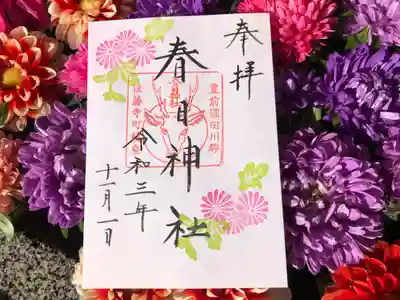 奉拝
春日神社
豊前國田川郡
後藤寺町宮尾
令和三年
十一月一日